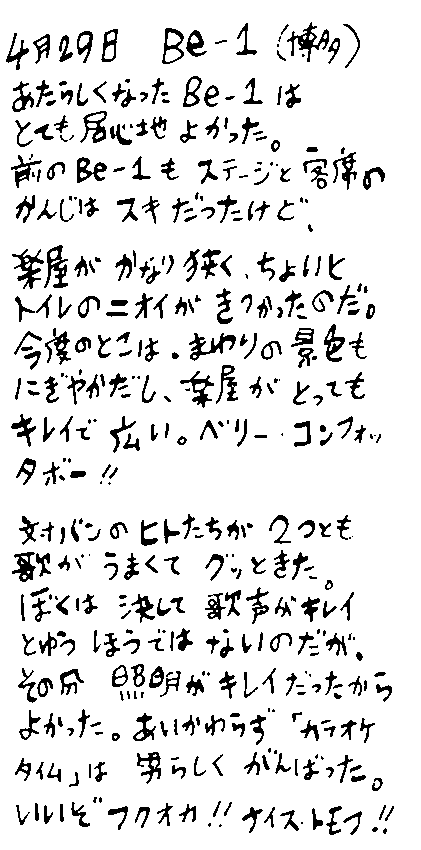 4月29日 Be-1 (博多)
あたらしくなった Be-1 は
とても居心地よかった。
前のBe-1も ステージと客席の
かんじは スキだったけど、
楽屋が かなり狭く、ちょいと
トイレのニオイが きつかったのだ。
今度のとこは、まわりの景色も
にぎやかだし、楽屋が とっても
キレイで 広い。ベリー・コンフォッ
タボー!!
対バンのヒトたちが 2つとも
歌が うまくて グッときた。
ぼくは 決して 歌声がキレイ
とゆう ほうでは ないのだが、
その分 照明がキレイだったから
よかった。あいかわらず 「カラオケ
タイム」は 男らしく がんばった。
いいぞ フクオカ!! ナイス・トモフ!!